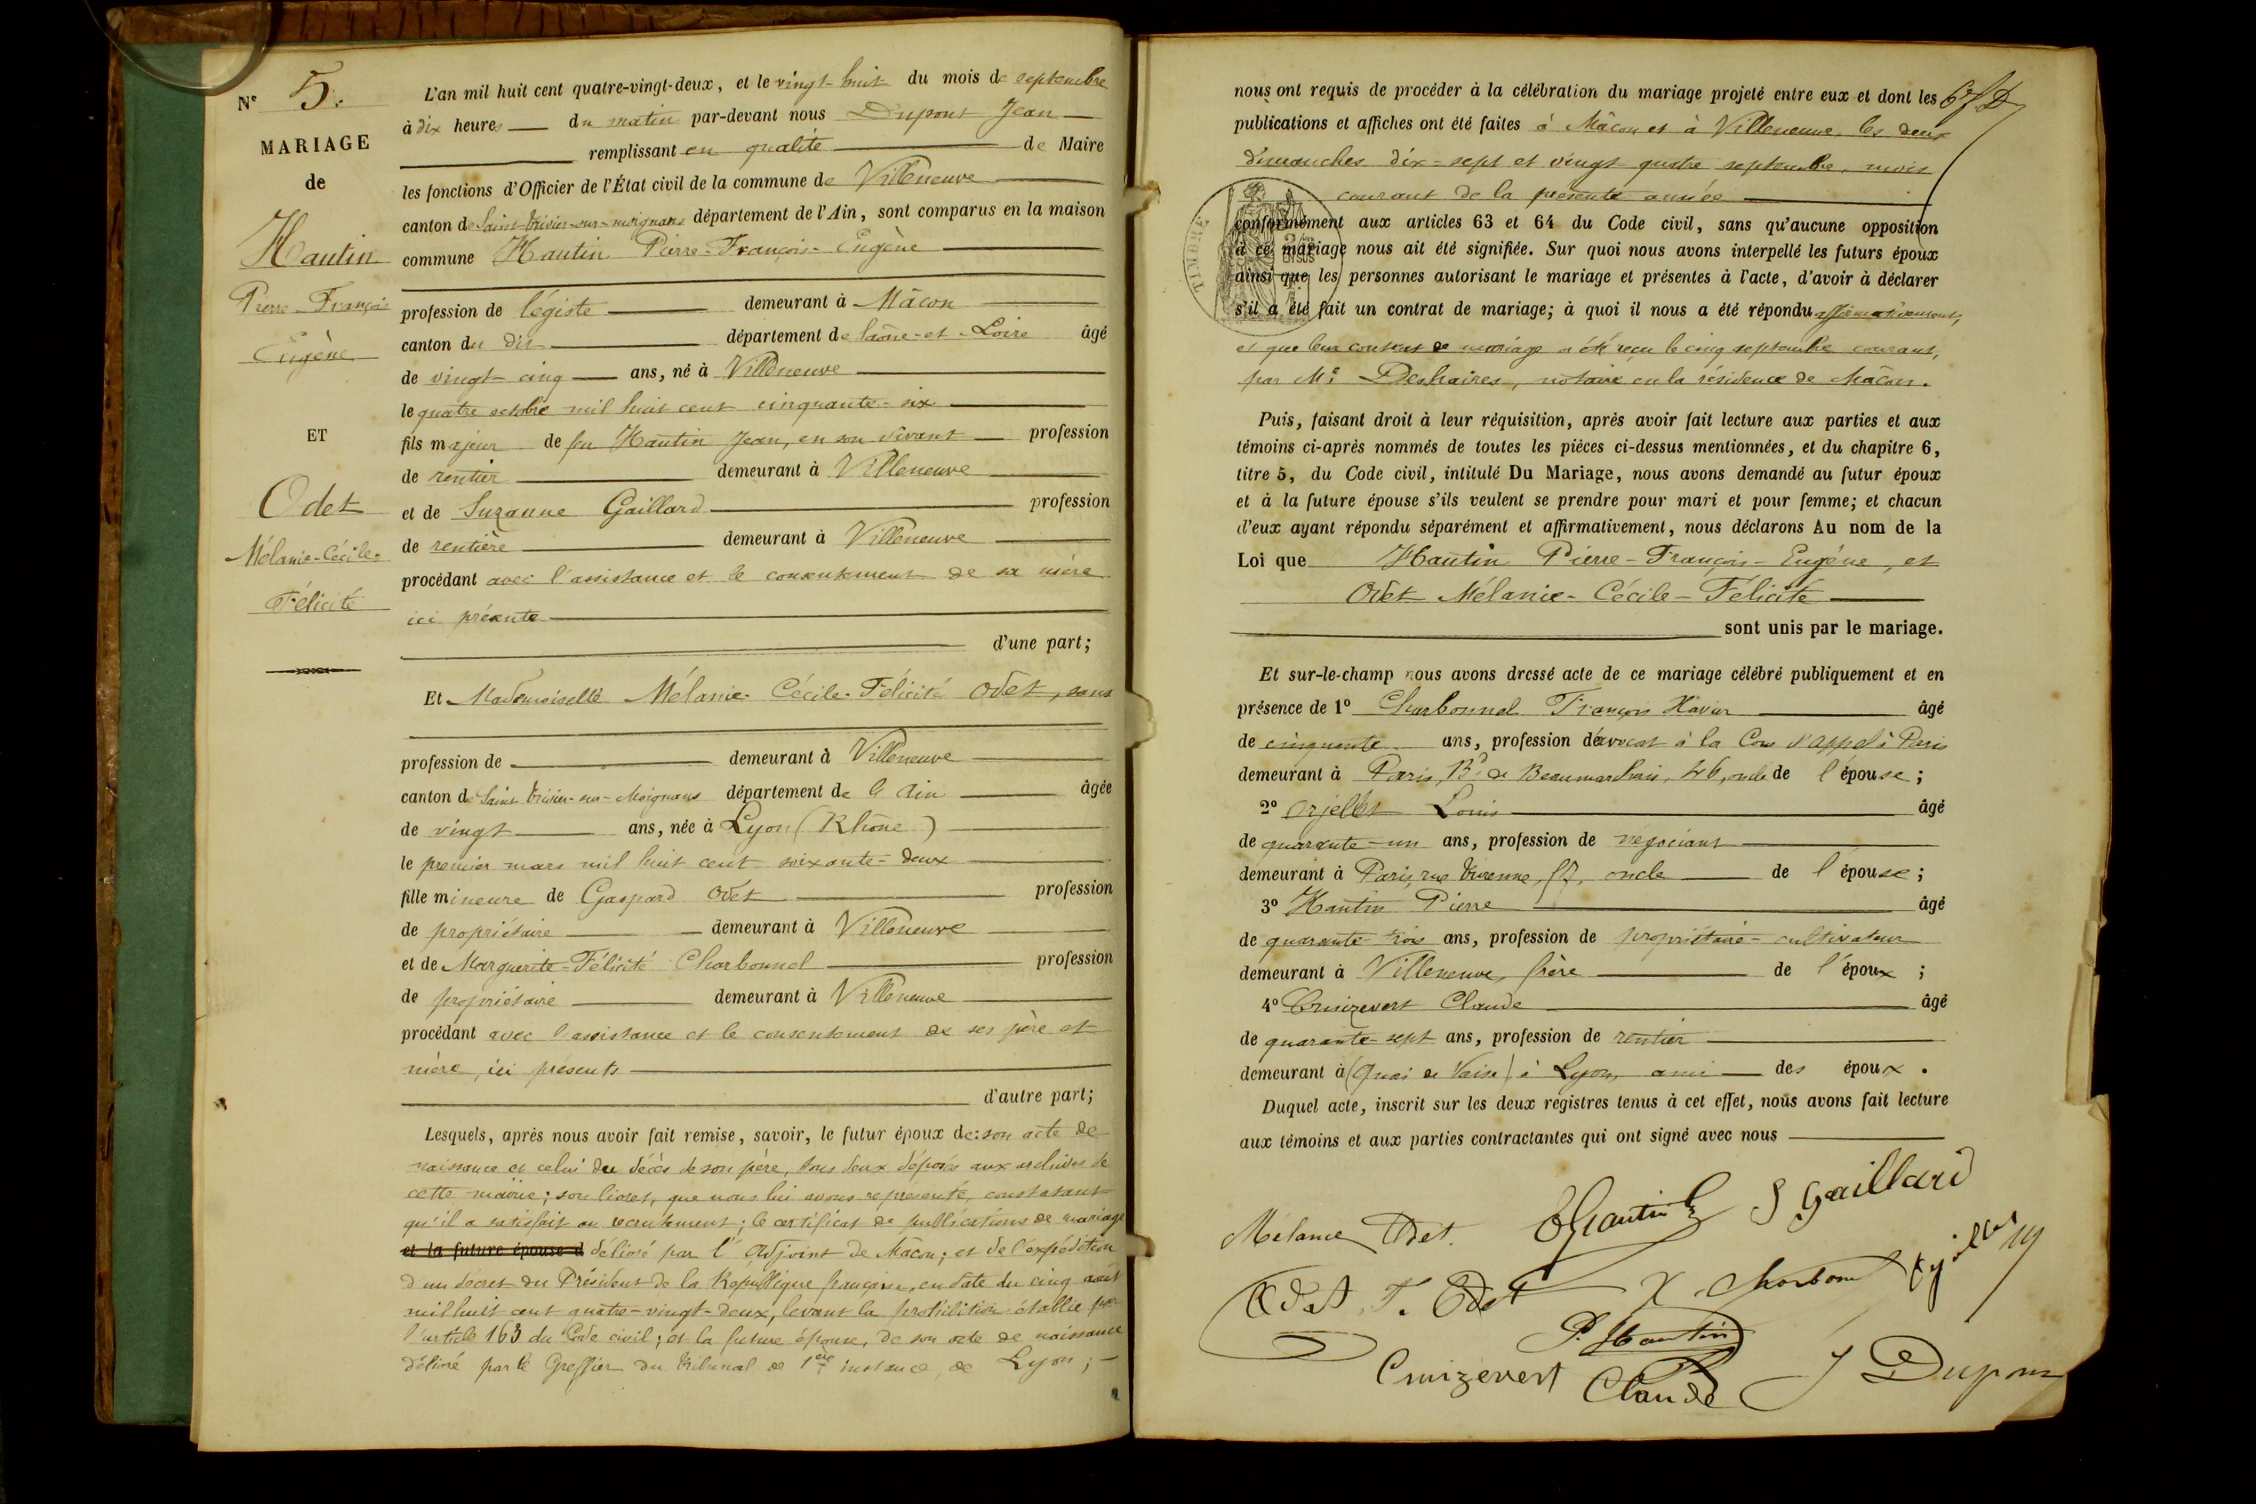 Nº 5.
MARIAGE
de
Hautin
Pierre-François
Eugène
ET
Odet
Mélanie-Cécile-
Félicité
L'an mil huit cent quatre-vingt-deux, et le vingt-huit du mois de septembre
à dix heures du matin par-devant nous Dupont Jean
remplissant en qualité de Maire
les fonctions d'Officier de l'État civil de la commune de Villeneuve
canton de Saint-Trivier-sur-Moignans département de l'Ain, sont comparus en la maison
commune Hautin Pierre-François-Eugène
profession de légiste demeurant à Mâcon
canton du dit département de Saône-et-Loire âgé
de vingt-cinq ans, né à Villeneuve
le quatre octobre mil huit cent cinquante-six
fils majeur de feu Hautin Jean, en son vivant profession
de rentier demeurant à Villeneuve
et de Suzanne Gaillard profession
de rentière demeurant à Villeneuve
procédant avec l'assistance et le consentement de sa mère
ici présente
d'une part;
Et Mademoiselle Mélanie-Cécile-Félicité Odet, sans
profession de demeurant à Villeneuve
canton de Saint-Trivier-sur-Moignans département de l'Ain âgée
de vingt ans, née à Lyon (Rhône)
le premier mars mil huit cent soixante-deux
fille mineure de Gaspard Odet profession
de propriétaire demeurant à Villeneuve
et de Marguerite-Félicité Charbonnel profession
de propriétaire demeurant à Villeneuve
procédant avec l'assistance et le consentement de ses père et
mère, ici présents
d'autre part;
Lesquels, après nous avoir fait remise, savoir, le futur époux de: son acte de
naissance et celui du décès de son père, tous deux déposés aux archives de
cette mairie; son livret, que nous lui avons représenté, constatant
qu'il a satisfait au recrutement; le certificat de publications de mariage
et la future épouse d délivré par l'Adjoint de Mâcon; et de l'expédition
d'un décret du Président de la République française, en date du cinq août
mil huit cent quatre-vingt-deux, levant la prohibition établie par
l'article 163 du Code civil; et la future épouse, de son acte de naissance
délivré par le Greffier du tribunal de 1ère instance de Lyon;
nous ont requis de procéder à la célébration du mariage projeté entre eux et dont les
publications et affiches ont été faites à Mâcon et à Villeneuve, les deux
dimanches dix-sept et vingt-quatre septembre, mois
courant de la présente année
TIMBRE
conformément aux articles 63 et 64 du Code civil, sans qu'aucune opposition
à ce mariage nous ait été signifiée. Sur quoi nous avons interpellé les futurs époux
ainsi que les personnes autorisant le mariage et présentes à l'acte, d'avoir à déclarer
s'il a été fait un contrat de mariage; à quoi il nous a été répondu affirmativement,
et que leur contrat de mariage a été reçu le cinq septembre courant,
par Me Deshaires, notaire en la résidence de Mâcon.
Puis, faisant droit à leur réquisition, après avoir fait lecture aux parties et aux
témoins ci-après nommés de toutes les pièces ci-dessus mentionnées, et du chapitre 6,
titre 5, du Code civil, intitulé Du Mariage, nous avons demandé au futur époux
et à la future épouse s'ils veulent se prendre pour mari et pour femme; et chacun
d'eux ayant répondu séparément et affirmativement, nous déclarons Au nom de la
Loi que Hautin Pierre-François-Eugène, et
Odet Mélanie-Cécile-Félicité
sont unis par le mariage.
Et sur-le-champ nous avons dressé acte de ce mariage célébré publiquement et en
présence de 1º Charbonnel François Xavier âgé
de cinquante ans, profession d'avocat à la Cour d'appel à Paris
demeurant à Paris, Bd de Beaumarchais, 46, oncle de l'épouse;
2º Orjollet Louis âgé
de quarante-un ans, profession de négociant
demeurant à Paris, rue Turenne, oncle de l'épouse;
3º Hautin Pierre âgé
de quarante-trois ans, profession de propriétaire-cultivateur
demeurant à Villeneuve, frère de l'époux;
4º Cruizevert Claude âgé
de quarante-sept ans, profession de rentier
demeurant à (Quai de Vaise) à Lyon, ami des époux.
Duquel acte, inscrit sur les deux registres tenus à cet effet, nous avons fait lecture
aux témoins et aux parties contractantes qui ont signé avec nous
Mélanie Odet. Hautin S Gaillard
Odet F. Odet X Charbonnel
P. Hautin
Cruizevert Claude J Dupont